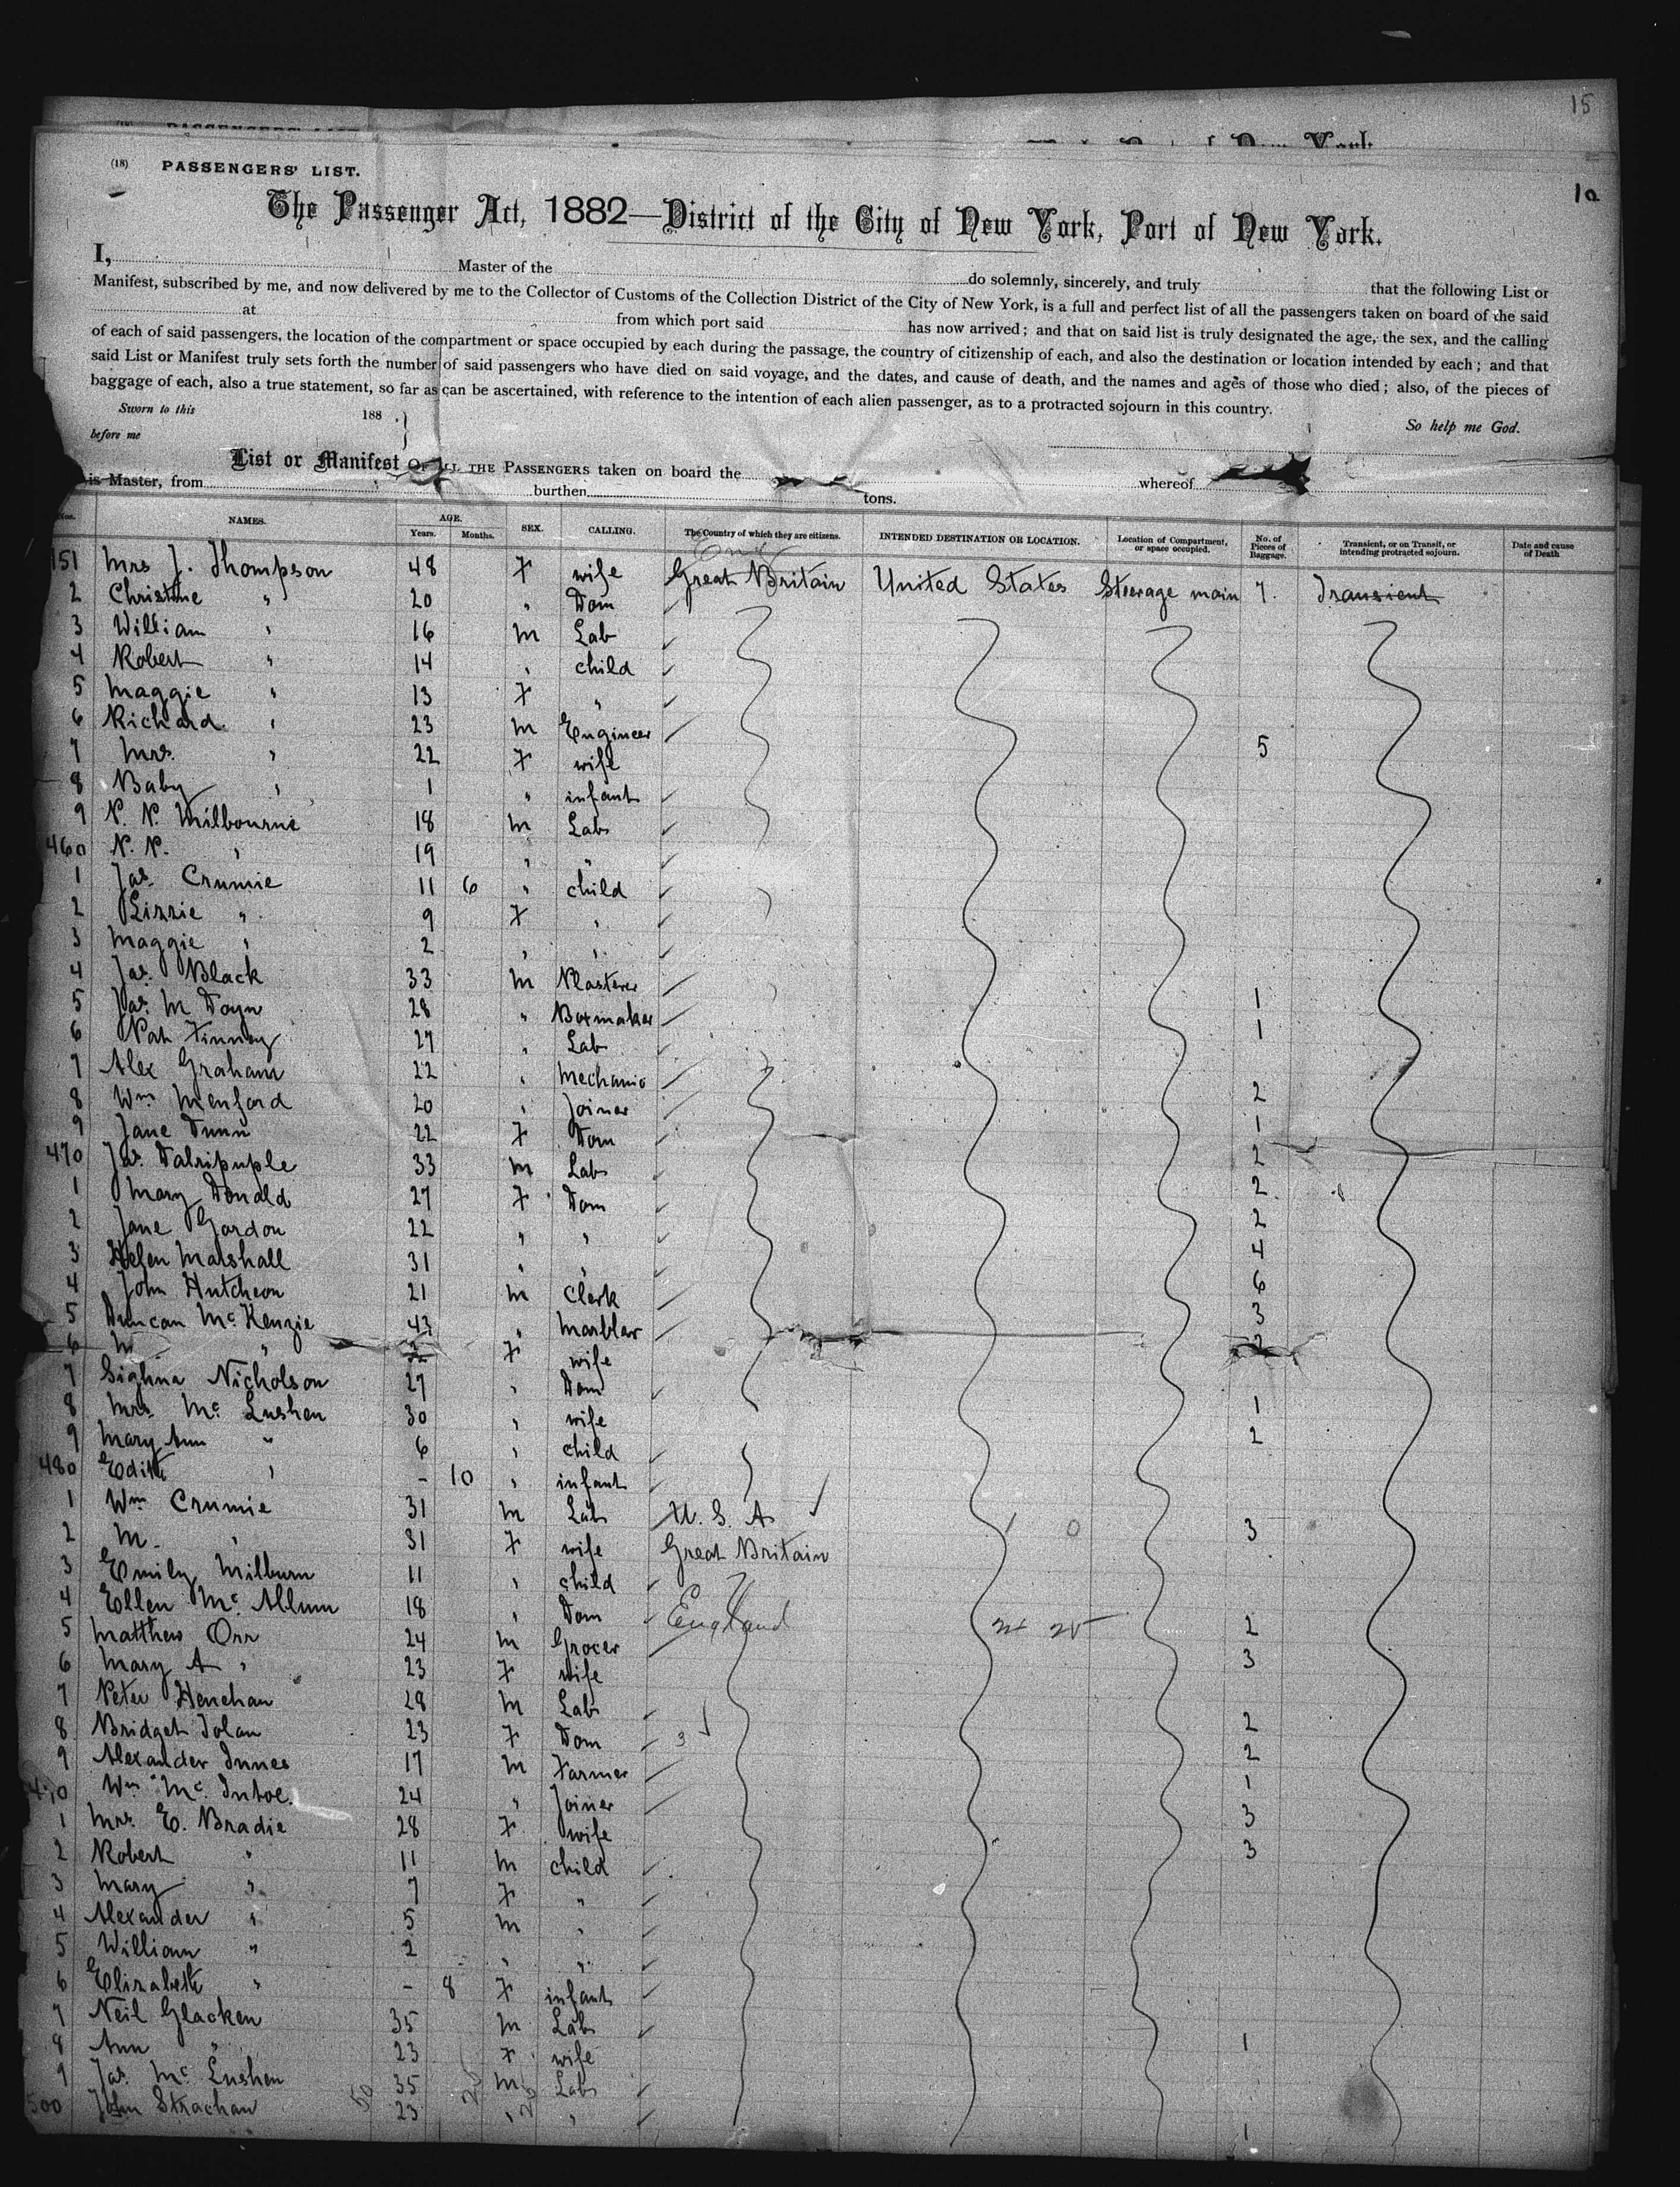 15
(18) PASSENGERS' LIST.
10
The Passenger Act, 1882—District of the City of New York, Port of New York.
I, Master of the do solemnly, sincerely, and truly that the following List or
Manifest, subscribed by me, and now delivered by me to the Collector of Customs of the Collection District of the City of New York, is a full and perfect list of all the passengers taken on board of the said
at from which port said has now arrived; and that on said list is truly designated the age, the sex, and the calling
of each of said passengers, the location of the compartment or space occupied by each during the passage, the country of citizenship of each, and also the destination or location intended by each; and that
said List or Manifest truly sets forth the number of said passengers who have died on said voyage, and the dates, and cause of death, and the names and ages of those who died; also, of the pieces of
baggage of each, also a true statement, so far as can be ascertained, with reference to the intention of each alien passenger, as to a protracted sojourn in this country.
Sworn to this 188 So help me God.
before me
List or Manifest OF ALL THE PASSENGERS taken on board the whereof
is Master, from burthen tons.
Nos. NAMES. AGE. Years. Months. SEX. CALLING. The Country of which they are citizens. INTENDED DESTINATION OR LOCATION. Location of Compartment, or space occupied. No. of Pieces of Baggage. Transient, or on Transit, or intending protracted sojourn. Date and cause of Death
451 Mrs J. Thompson 48 F wife Great Britain United States Steerage main 7. Transient
2 Christine " 20 " Dom
3 William " 16 M Lab
4 Robert " 14 " child
5 Maggie " 13 F "
6 Richard " 23 M Engineer 5
7 Mrs. " 22 F wife
8 Baby " 1 " infant
9 P. P. Milbourne 18 M Lab
460 P. P. " 19 " "
1 Jas Crumie 11 6 " child
2 Lizzie " 9 F "
3 Maggie " 2 " "
4 Jas. Black 33 M Plasterer 1
5 Jas. M 28 " Boxmaker 1
6 Pat Finney 27 " Lab
7 Alex Graham 22 " Mechanic 2
8 Wm Menford 20 " Joiner 1
9 Jane Dunn 22 F Dom 2
470 Jas. 33 M Lab 2
1 Mary Donald 27 F Dom 2
2 Jane Gordon 22 " " 4
3 Helen Marshall 31 " " 6
4 John Hutcheon 21 M Clerk 3
5 Duncan McKenzie 43 " Marbler 2
6 M " F wife
7 Nicholson 27 " Dom 1
8 Mrs. Mc Lushen 30 " wife 2
9 Mary Ann " 6 " child
480 Edith " - 10 " infant
1 Wm Crumie 31 M Lab U. S. A 3
2 M. " 31 F wife Great Britain
3 Emily Milburn 11 " child
4 Ellen Mc Allum 18 " Dom England 2
5 Matthew Orr 24 M Grocer 3
6 Mary A " 23 F wife
7 Peter Henehan 28 M Lab 2
8 Bridget Tolan 23 F Dom 3 2
9 Alexander Innes 17 M Farmer 1
490 Wm Mc 24 " Joiner 3
1 Mrs. E. Bradie 28 F wife 3
2 Robert " 11 M child
3 Mary " 7 F "
4 Alexander " 5 M "
5 William " 2 " "
6 Elizabeth " - 8 F infant
7 Neil Glacken 35 M Lab 1
8 Ann " 23 F wife
9 Jas. Mc Lushen 35 M Lab
500 John Strachan 23 " " 1